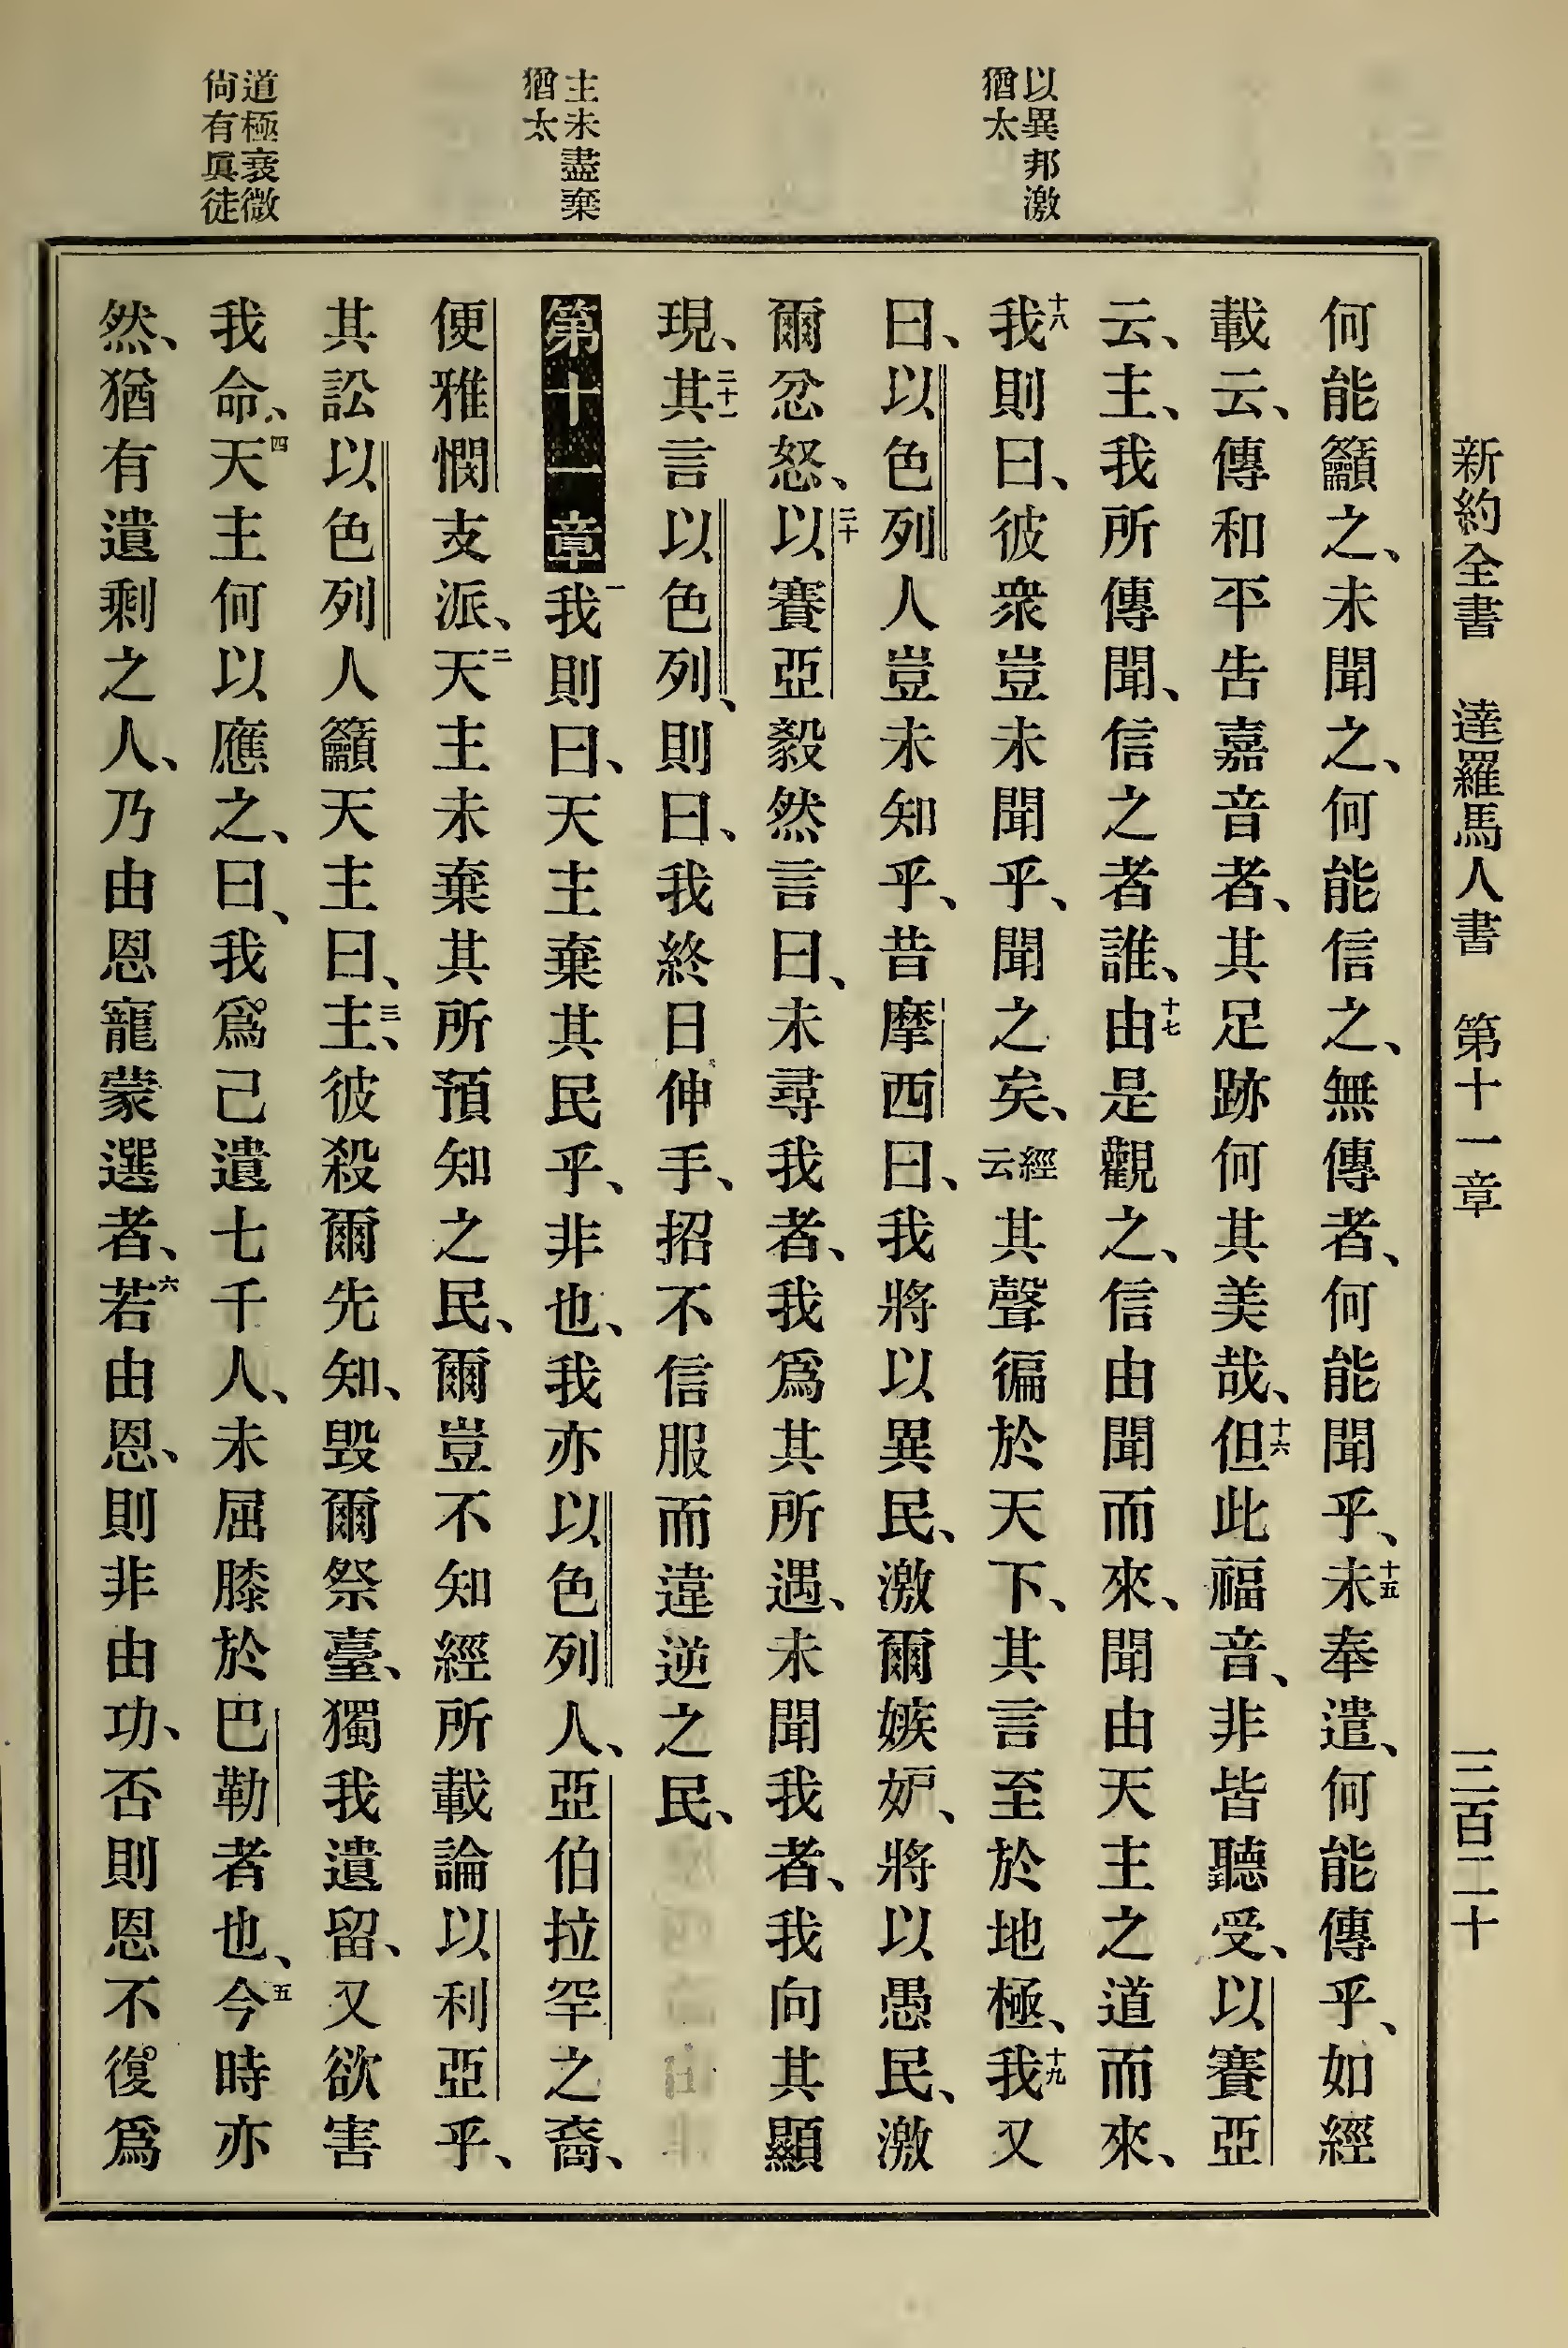 新約全書 達羅馬人書 第十一章 三百二十
以異邦激
猶太
主未盡棄
猶太
道極衰微
尙有眞徒
何能籲之、未聞之、何能信之、無傳者、何能聞乎、十五未奉遣、何能傳乎、如經
載云、傳和平告嘉音者、其足跡何其美哉、十六但此福音、非皆聽受、以賽亞
云、主、我所傳聞、信之者誰、十七由是觀之、信由聞而來、聞由天主之道而來、
十八我則曰、彼衆豈未聞乎、聞之矣、經云其聲徧於天下、其言至於地極、十九我又
曰、以色列人豈未知乎、昔摩西曰、我將以異民、激爾嫉妒、將以愚民、激
爾忿怒、二十以賽亞毅然言曰、未尋我者、我爲其所遇、未聞我者、我向其顯
現、二十一其言以色列、則曰、我終日伸手、招不信服而違逆之民、
第十一章 一我則曰、天主棄其民乎、非也、我亦以色列人、亞伯拉罕之裔、
便雅憫支派、二天主未棄其所預知之民、爾豈不知經所載論以利亞乎、
其訟以色列人籲天主曰、三主、彼殺爾先知、毀爾祭臺、獨我遺留、又欲害
我命、四天主何以應之、曰、我爲己遺七千人、未屈膝於巴勒者也、五今時亦
然、猶有遺剩之人、乃由恩寵蒙選者、六若由恩、則非由功、否則恩不復爲